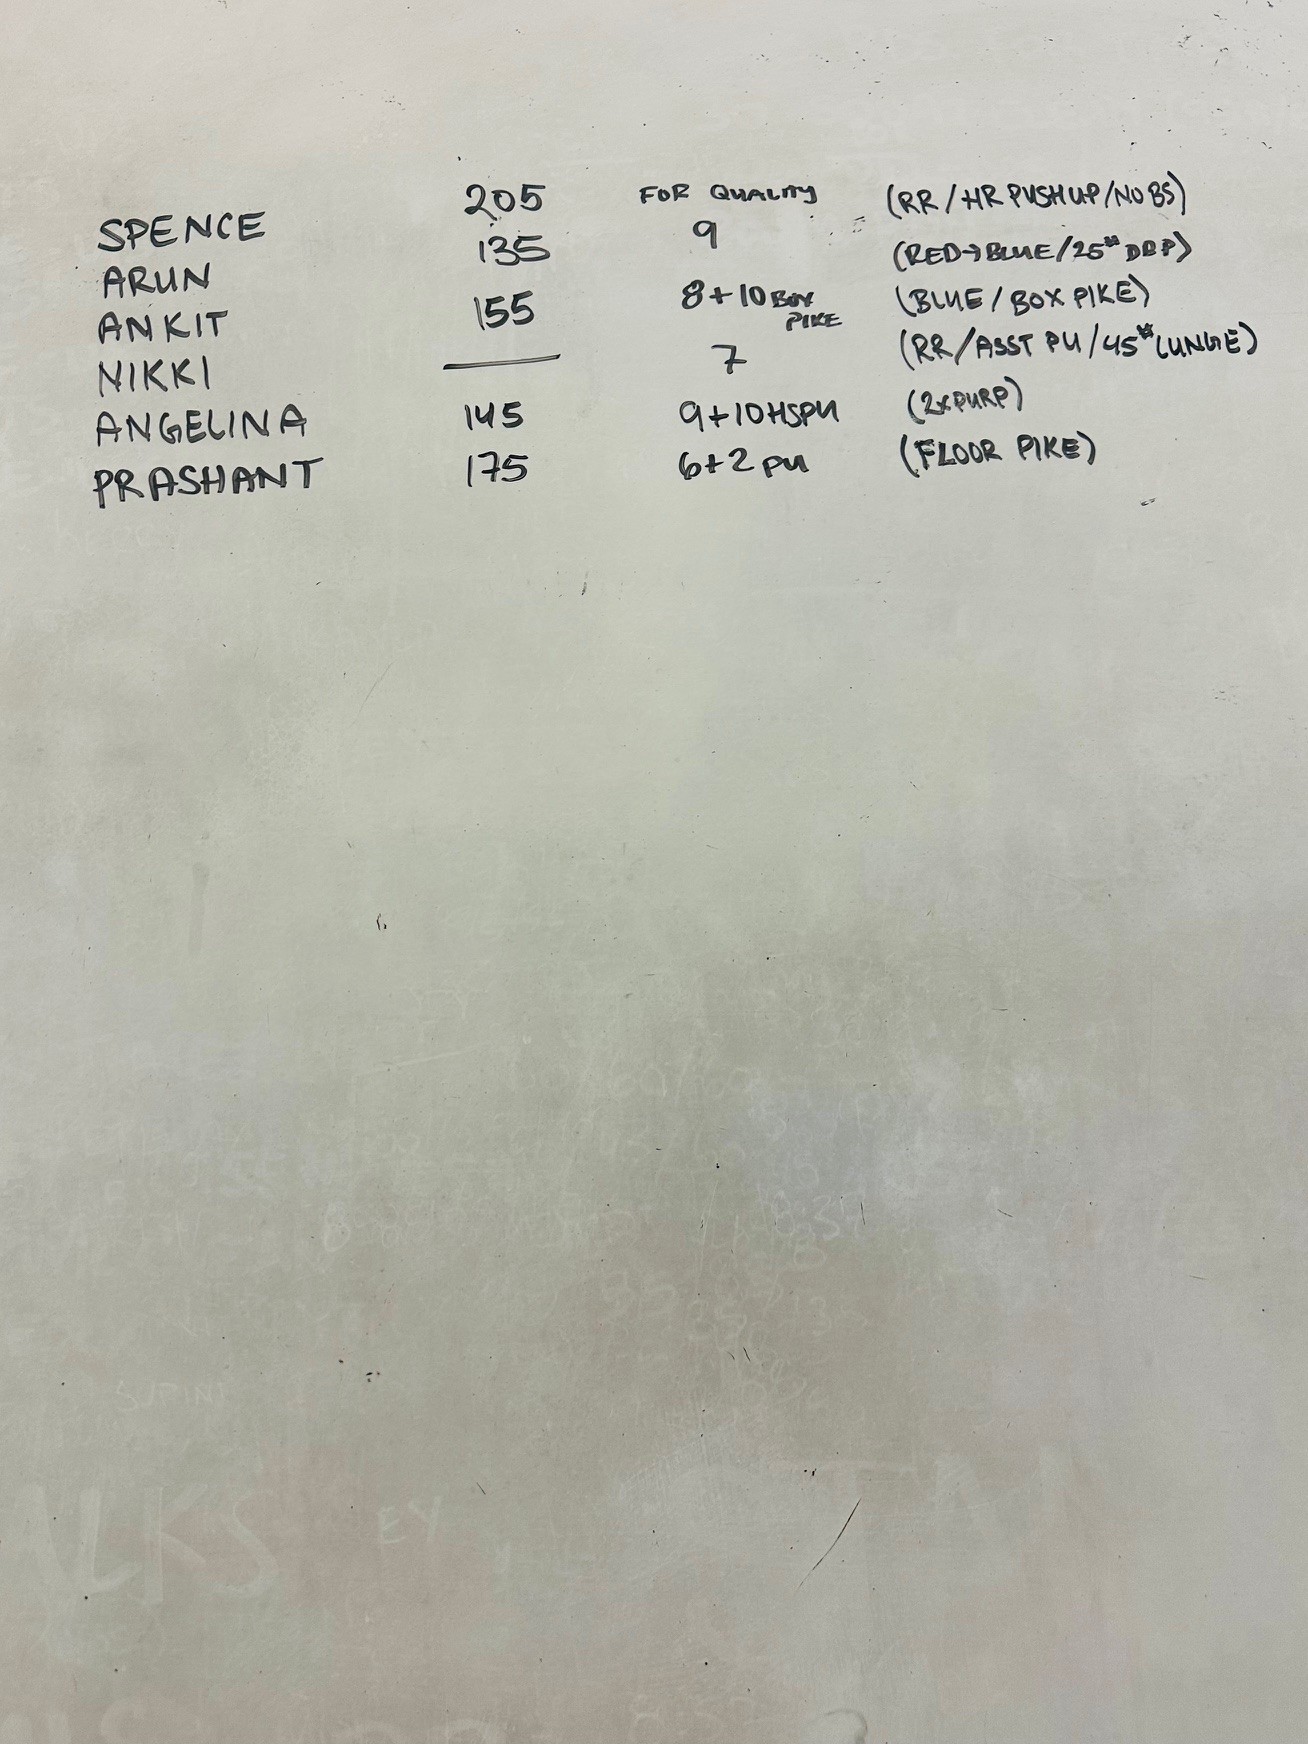 SPENCE 205 FOR QUALITY (RR/HR PUSHUP/NO BS)
ARUN 135 9 (RED→BLUE/25# DBP)
ANKIT 155 8+10 BOX PIKE (BLUE/BOX PIKE)
NIKKI — 7 (RR/ASST PU/45# LUNGE)
ANGELINA 145 9+10 HSPU (2XPURP)
PRASHANT 175 6+2 PU (FLOOR PIKE)